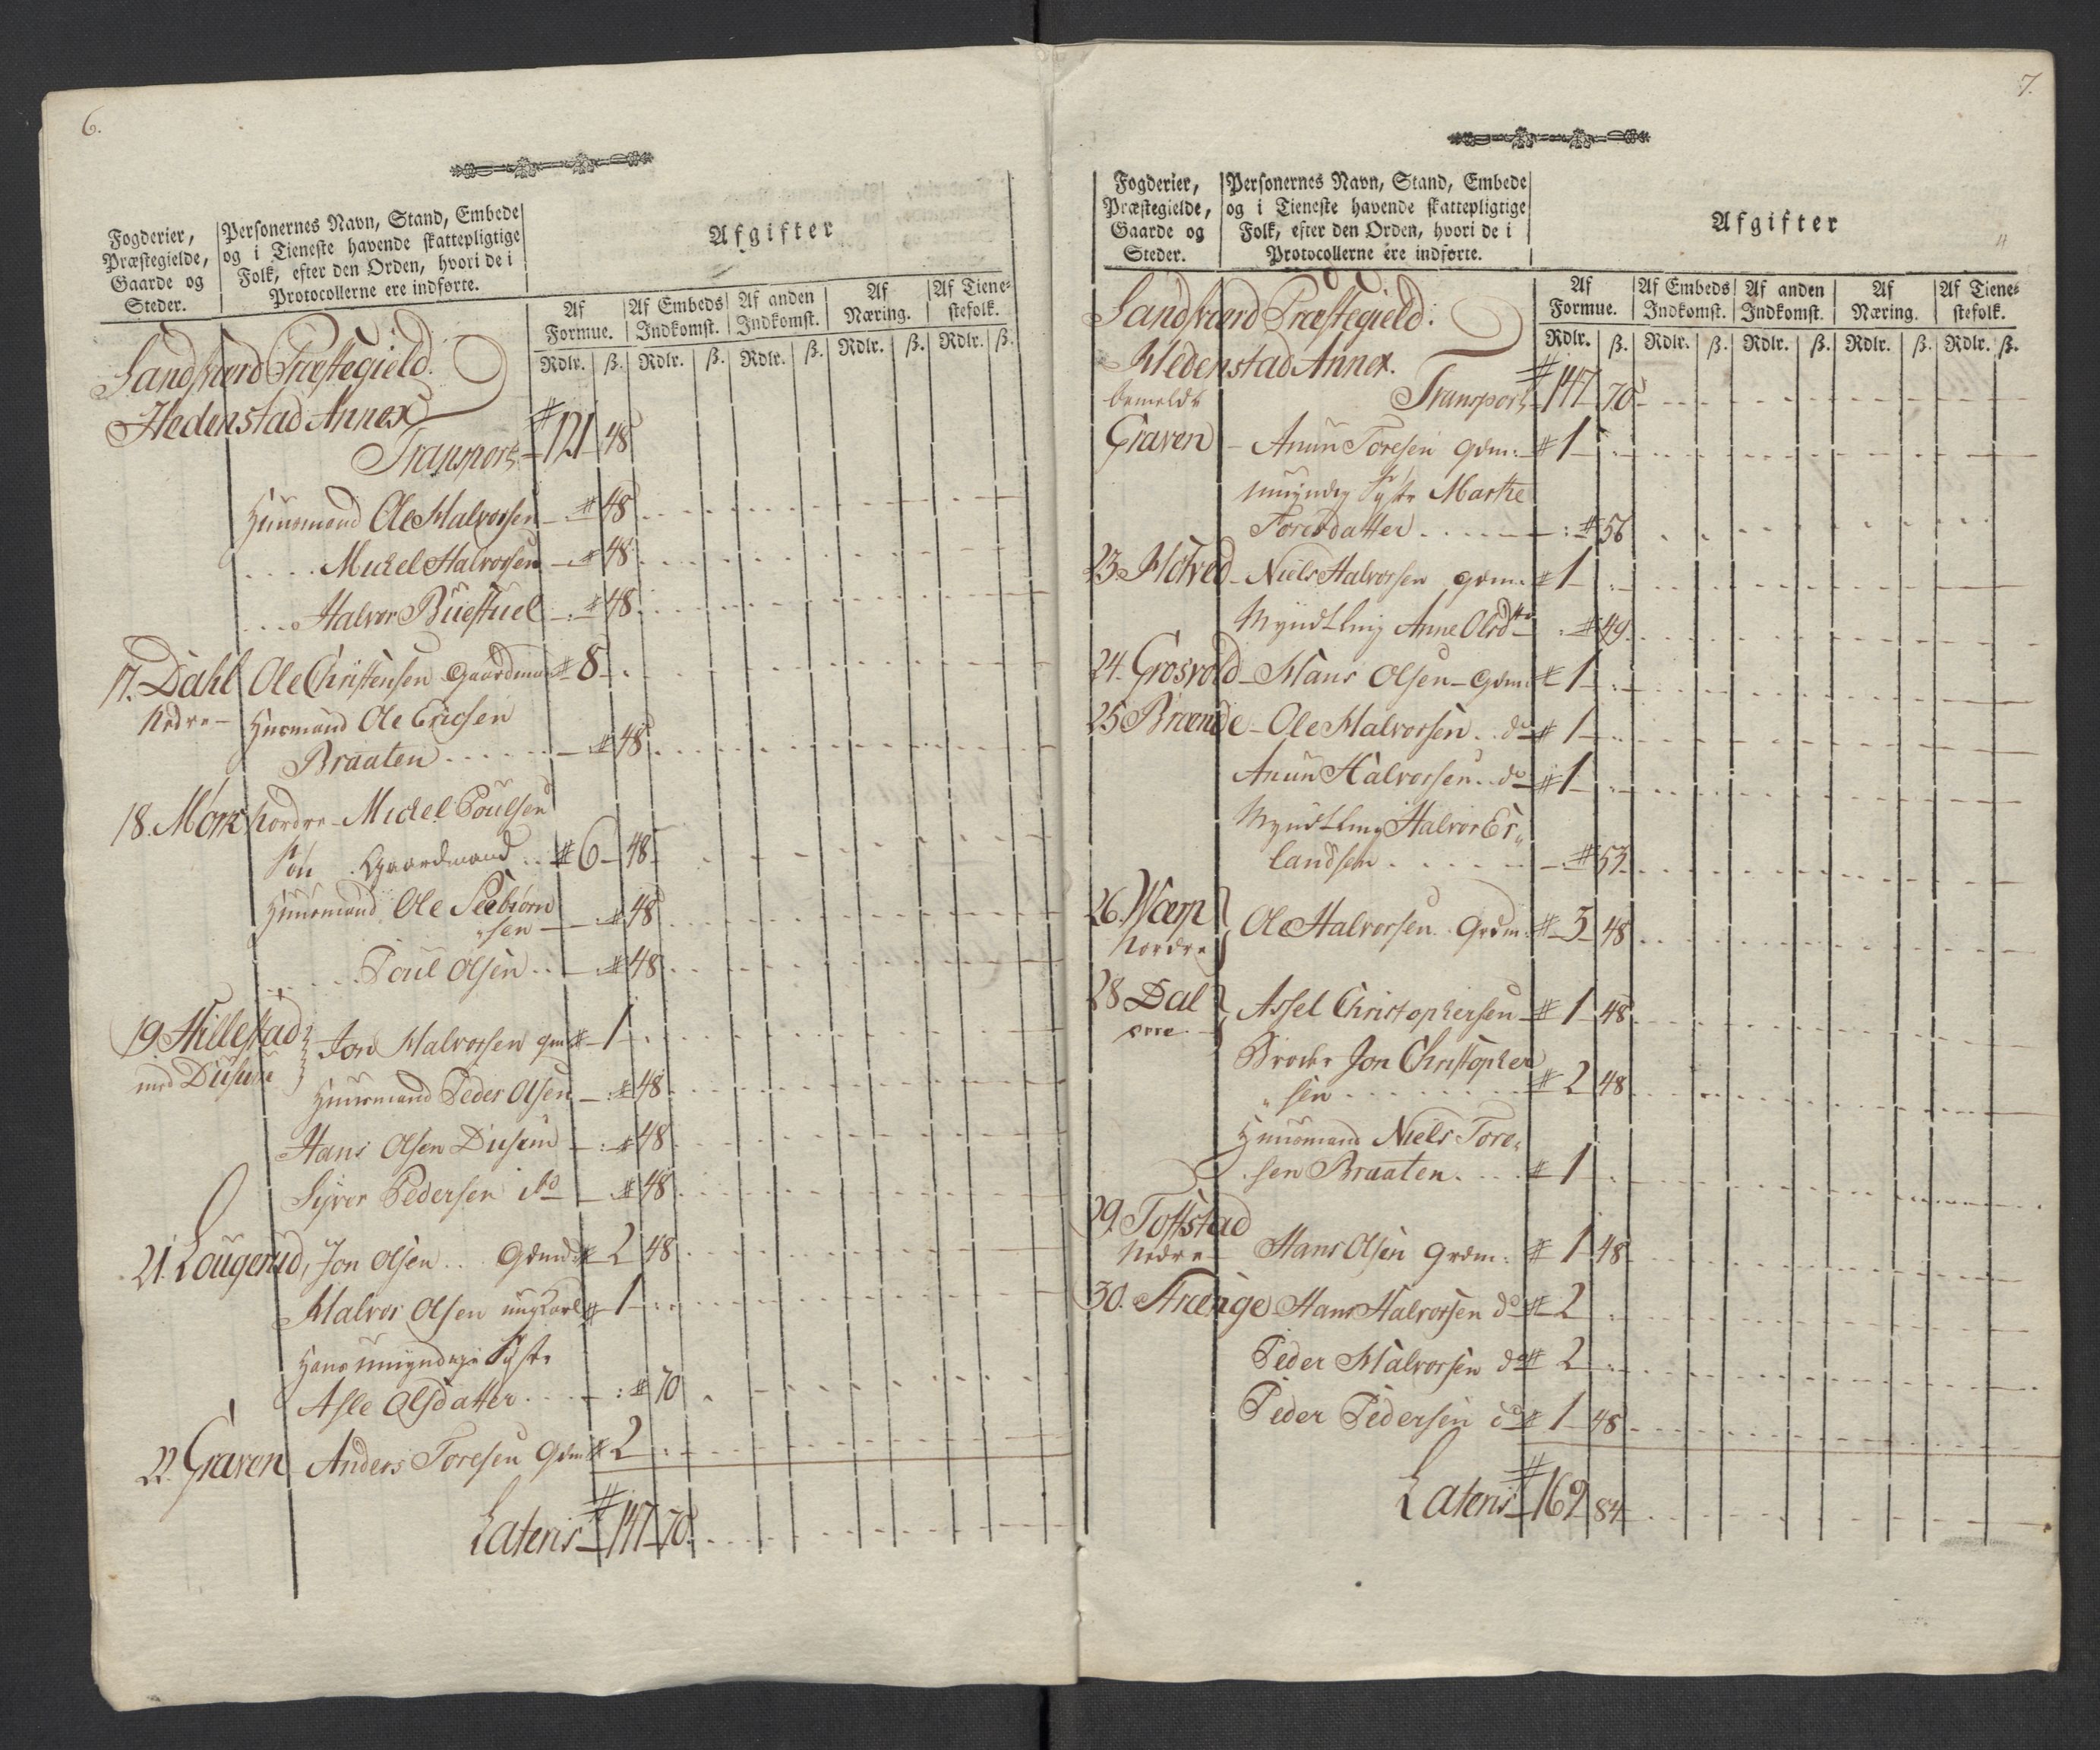 6.
Fogderier,
Præstegielde,
Gaarde og
Steder.
Personernes Navn, Stand, Embede
og i Tieneste havende skattepligtige
Folk, efter den Orden, hvori de i
Protocollerne ere indførte.
Afgifter
Af Formue. Af Embeds Indkomst. Af anden Indkomst. Af Næring. Af Tienestefolk.
Rdlr. ß. Rdlr. ß. Rdlr. ß. Rdlr. ß. Rdlr. ß.
Sandsværd Præstegield.
Hedenstad Annex
Transport 121 48
Huusmand Ole Halvorsen 48
Mickel Halvorsen 48
Halvor Buestuel 48
17. Dahl Ole Christensen Gaardmand 8
Nedre Huusmand Ole Ericsen
Braaten 48
18. Mørk Nordre Mickel Poulsen
Søn Gaardmand 6 48
Huusmand Ole Seebiørn
sen 48
Poul Olsen 48
19 Hillestad Jon Halvorsen gm 1
med Dusum
Huusmand Peder Olsen 48
Hans Olsen Dusum 48
Syver Pedersen do 48
21. Lougerud, Jon Olsen Gdmd 2 48
Halvor Olsen ungkarl 1
Hans umyndige Syst.
Asle Olsdatter 70
22. Graven Anders Toresen Gdm 2
Lateris 147 70
7.
Fogderier,
Præstegielde,
Gaarde og
Steder.
Personernes Navn, Stand, Embede
og i Tieneste havende skattepligtige
Folk, efter den Orden, hvori de i
Protocollerne ere indførte.
Afgifter
Af Formue. Af Embeds Indkomst. Af anden Indkomst. Af Næring. Af Tienestefolk.
Rdlr. ß. Rdlr. ß. Rdlr. ß. Rdlr. ß. Rdlr. ß.
Sandsværd Præstegield.
Hedenstad Annex.
bemeldt Transport 147 70
Graven Anun Toresen Gdm. 1
umyndig Syst. Marthe
Toresdatter 56
23. Hotved Niels Halvorsen gdm. 1
Myndtling Anne Olsdtr 49
24. Grosvold Hans Olsen Gdm. 1
25 Brænde Ole Halvorsen do 1
Anun Halvorsen do 1
Myndtling Halvor Er„
landsen 53
26. Wærp Ole Halvorsen Grdm. 3 48
Nordre
28 Dal Assel Christophersen 1 48
øvre
Broder Jon Christopher
„sen 2 48
Huusmand Niels Tore„
sen Braaten 1
29. Toffstad
Nedre Hans Olsen Grdm. 1 48
30. Strænge Hans Halvorsen do 2
Peder Halvorsen do 2
Peder Pedersen do 1 48
Lateris 169 84